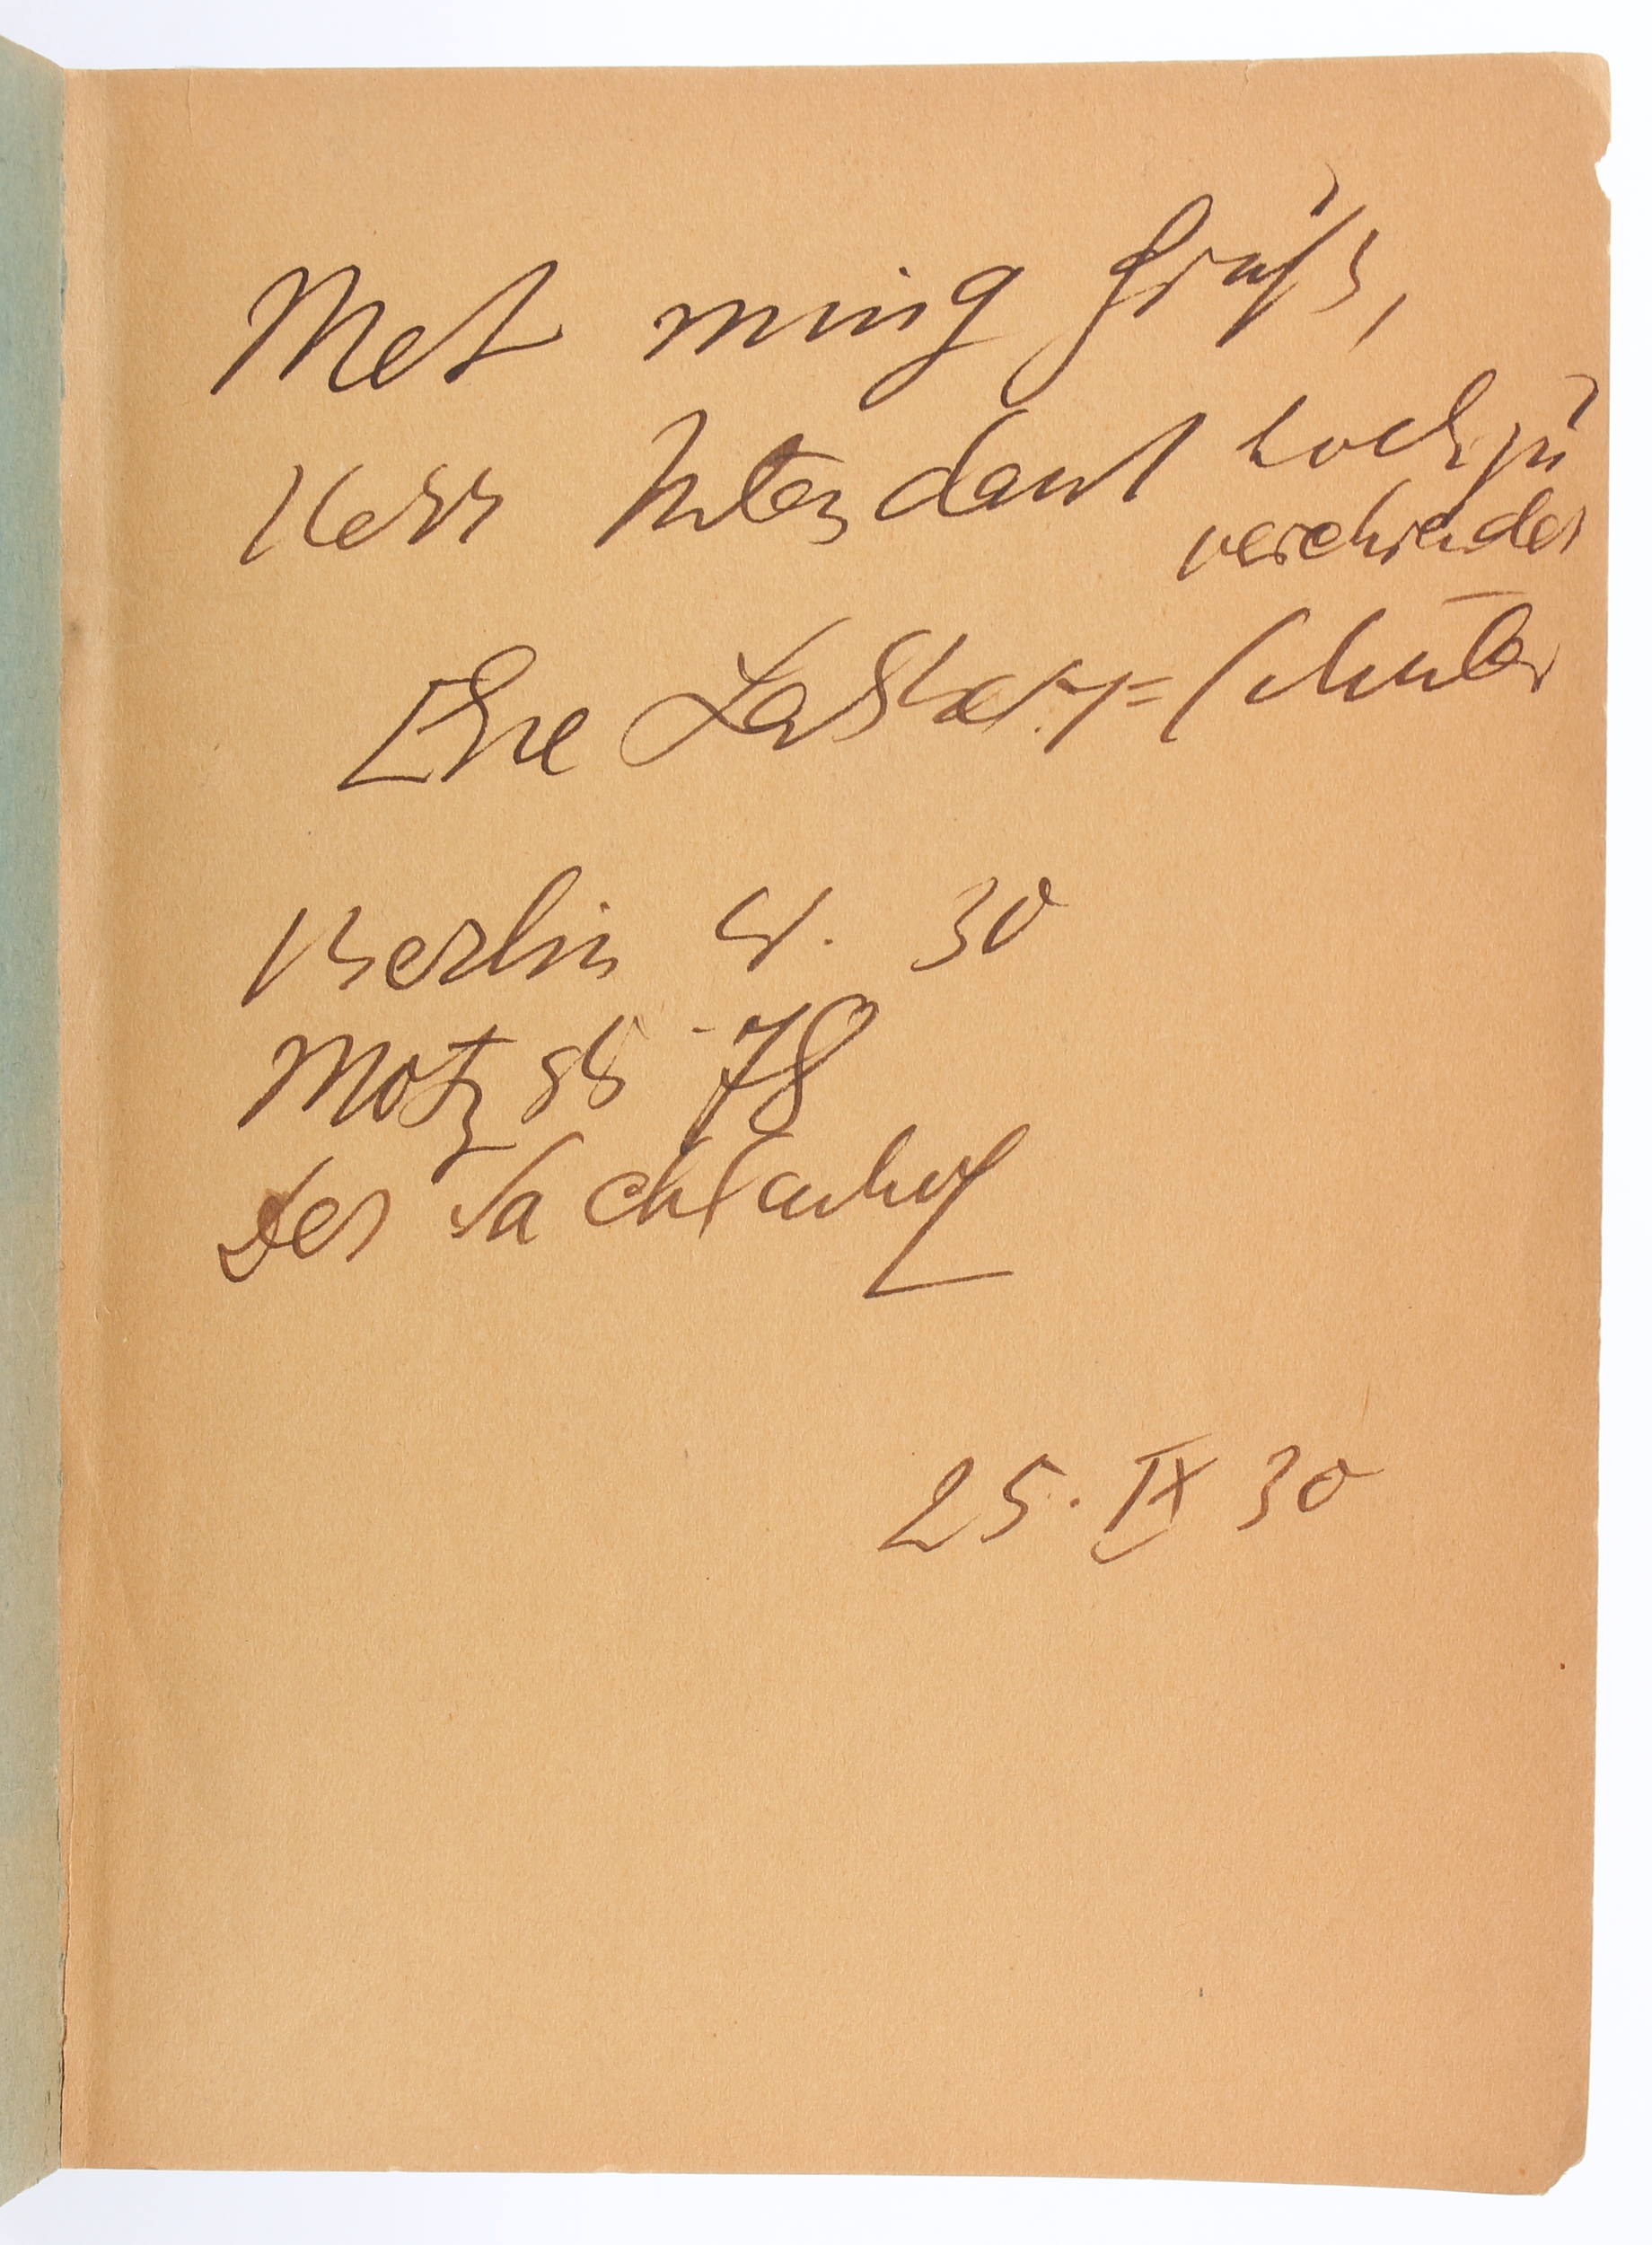 Met ming Gruß,
Herr Intendant hochzu
verehrender
Else Lasker-Schüler
Berlin W. 30
Motzstr 78
Der Sachsenhof
25. IX 30